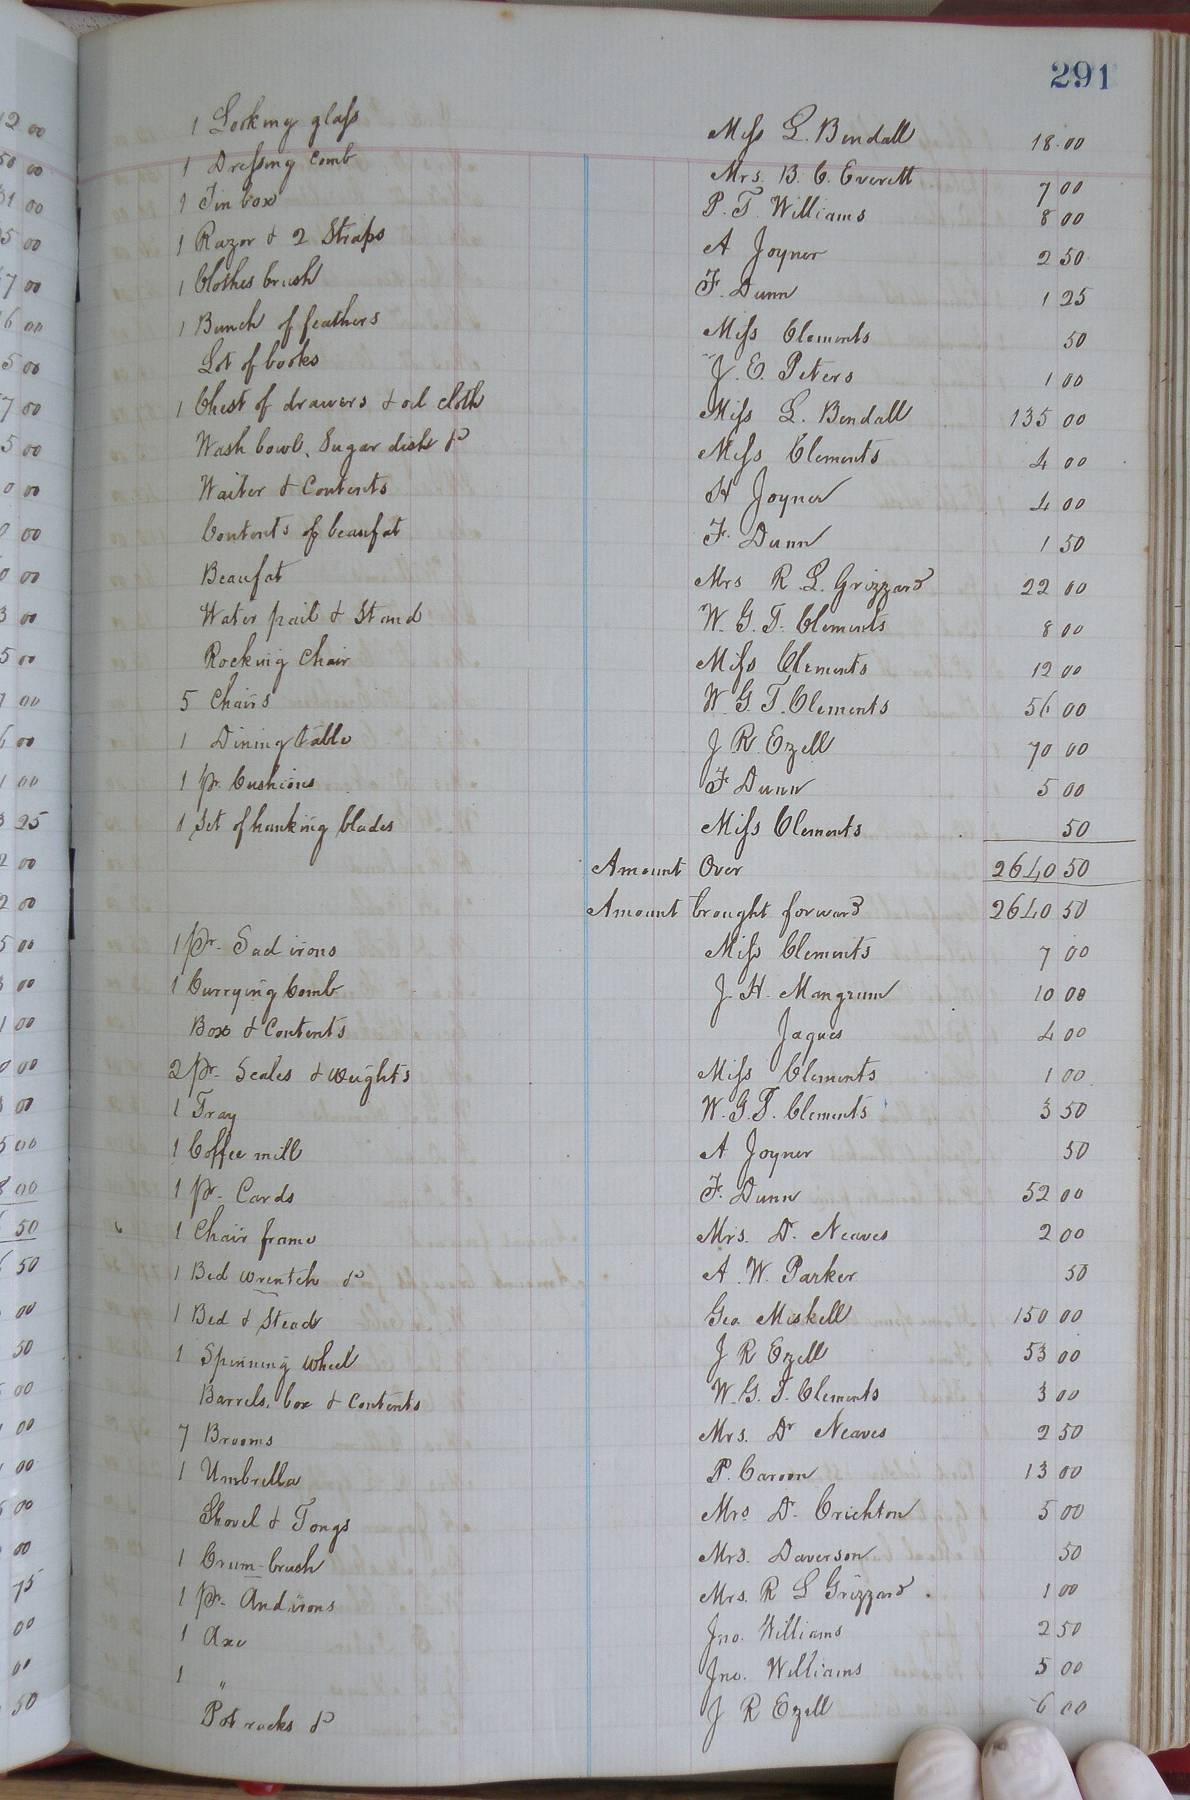 291
1 Looking glass Miss L. Bendall 18.00
1 Dressing comb Mrs. B. C. Everett 7 00
1 Tin box P. T. Williams 8 00
1 Razor & 2 Straps A Joyner 2 50
1 Clothes brush F. Dunn 1 25
1 Bunch of feathers Miss Clements 50
Lot of books J. E. Peters 1 00
1 Chest of drawers & oil cloth Miss L. Bendall 135 00
Wash bowl, Sugar dish &c Miss Clements 4 00
Waiter & Contents H Joyner 4 00
Contents of beaufat F. Dunn 1 50
Beaufat Mrs R. L. Grizzard 22 00
Water pail & Stand W. G. T. Clements 8 00
Rocking Chair Miss Clements 12 00
5 Chairs W. G. T. Clements 56 00
1 Dining table J R. Ezell 70 00
1 pr. Cushions F Dunn 5 00
1 Set of hanking blades Miss Clements 50
Amount Over 2640 50
Amount brought forward 2640 50
1 pr. Sad irons Miss Clements 7 00
1 Currying Comb J. H. Mangrum 10 00
Box & Contents Jaques 4 00
2 pr. Scales & weights Miss Clements 1 00
1 Tray W. G. T. Clements 3 50
1 Coffee mill A Joyner 50
1 pr. Cards F. Dunn 52 00
1 Chair frame Mrs. Dr. Neaves 2 00
1 Bed wrentch &c A. W. Parker 50
1 Bed & Stead Geo. Miskell 150 00
1 Spinning wheel J R Ezell 53 00
Barrels, box & Contents W. G. T. Clements 3 00
7 Brooms Mrs. Dr Neaves 2 50
1 Umbrella P. Caroon 13 00
Shovel & Tongs Mrs Dr. Crichton 5 00
1 Crum-brush Mrs. Daverson 50
1 pr. Andirons Mrs. R L Grizzard. 1 00
1 Axe Jno. Williams 2 50
1 " Jno. Williams 5 00
Pot racks &c J R Ezell 6 00